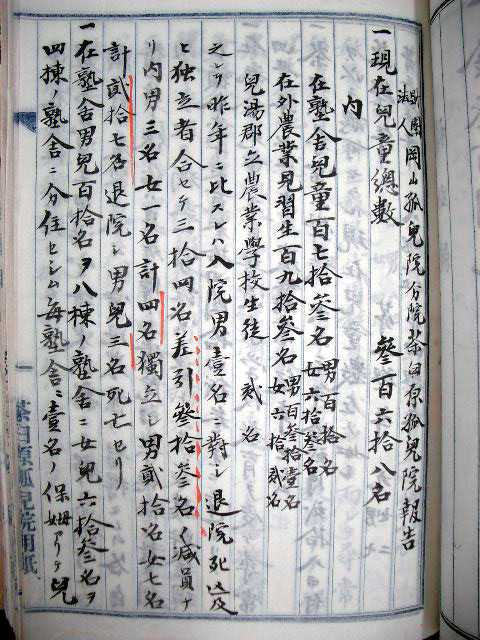 財團法人岡山孤兒院分院茶臼原孤兒院報告
一現在兒童總數 參百六拾八名
内
在塾舍兒童百七拾參名 男百拾名 女六拾參名
在外農業見習生百九拾參名 男百參拾壹名 女六拾貳名
兒湯郡立農業學校生徒 貳名
之レヲ昨年ニ比スレハ入院男壹名ニ對シ退院死亡及
ヒ独立者合セテ三拾四名差引參拾參名ノ減員ナ
リ内男三名女一名計四名獨立シ男貳拾名女七名
計貳拾七名退院シ男兒三名死亡セリ
一在塾舍男兒百拾名ヲ八棟ノ塾舍ニ女兒六拾參名ヲ
四棟ノ塾舍ニ分住セシム毎塾舍ニ壹名ノ保姆アリテ兒
茶臼原孤兒院用紙